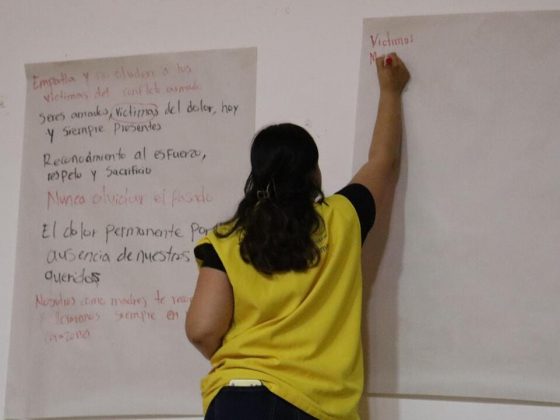 Empatia y no olvidar a las
victimas del conflicto armado
Seres amados, victimas del dolor, hoy
y siempre Presentes
Reconocimiento al esfuerzo,
respeto y Sacrificio
Nunca olvidar el Pasado
El dolor permanente Por
ausencia de nuestros
queridos
Nosotras como madres te
llevamos siempre en
corazon
Victimas